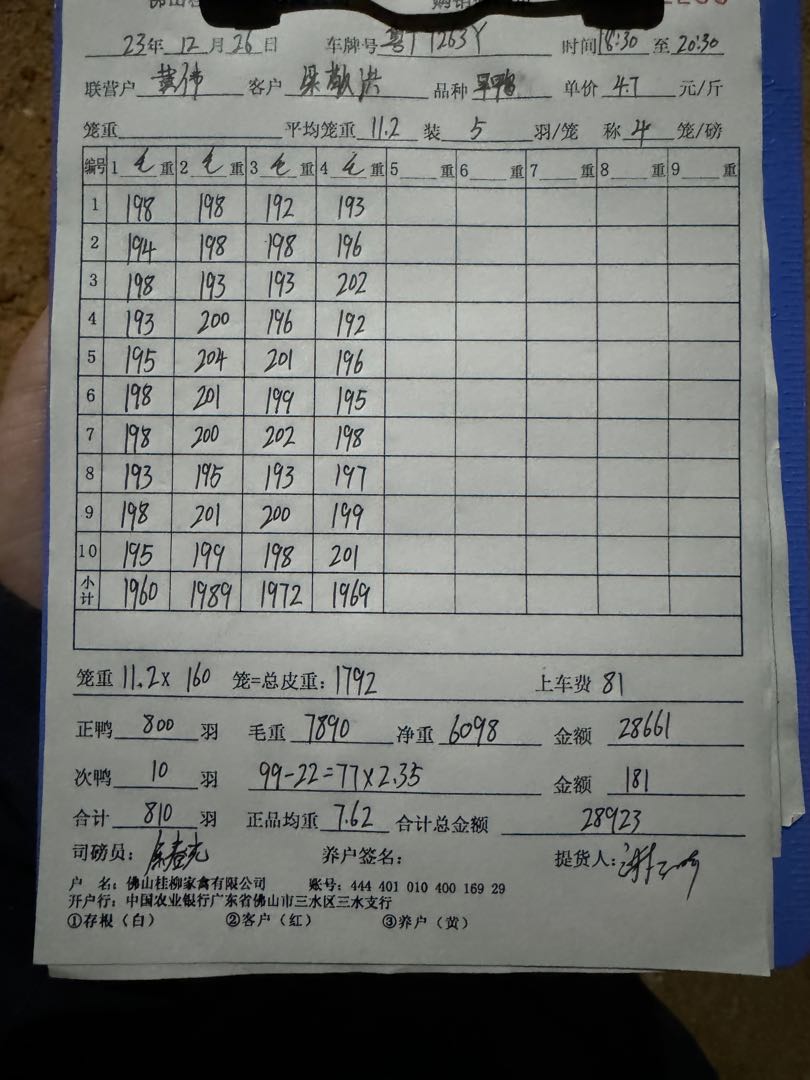 佛山桂
23年 12月 26日 车牌号 粤T1263Y 时间 18:30 至 20:30
联营户 黄伟 客户 梁敬洪 品种 旱鸭 单价 4.7 元/斤
笼重 平均笼重 11.2 装 5 羽/笼 称 4 笼/磅
编号 1 毛 重 2 毛 重 3 毛 重 4 毛 重 5 重 6 重 7 重 8 重 9 重
1 198 198 192 193
2 194 198 198 196
3 198 193 193 202
4 193 200 196 192
5 195 204 201 196
6 198 201 199 195
7 198 200 202 198
8 193 195 193 197
9 198 201 200 199
10 195 199 198 201
小计 1960 1989 1972 1969
笼重 11.2x 160 笼=总皮重: 1792 上车费 81
正鸭 800 羽 毛重 7890 净重 6098 金额 28661
次鸭 10 羽 99-22=77x2.35 金额 181
合计 810 羽 正品均重 7.62 合计总金额 28923
司磅员: 养户签名: 提货人:
户 名: 佛山桂柳家禽有限公司 账号: 444 401 010 400 169 29
开户行: 中国农业银行广东省佛山市三水区三水支行
①存根(白) ②客户(红) ③养户(黄)